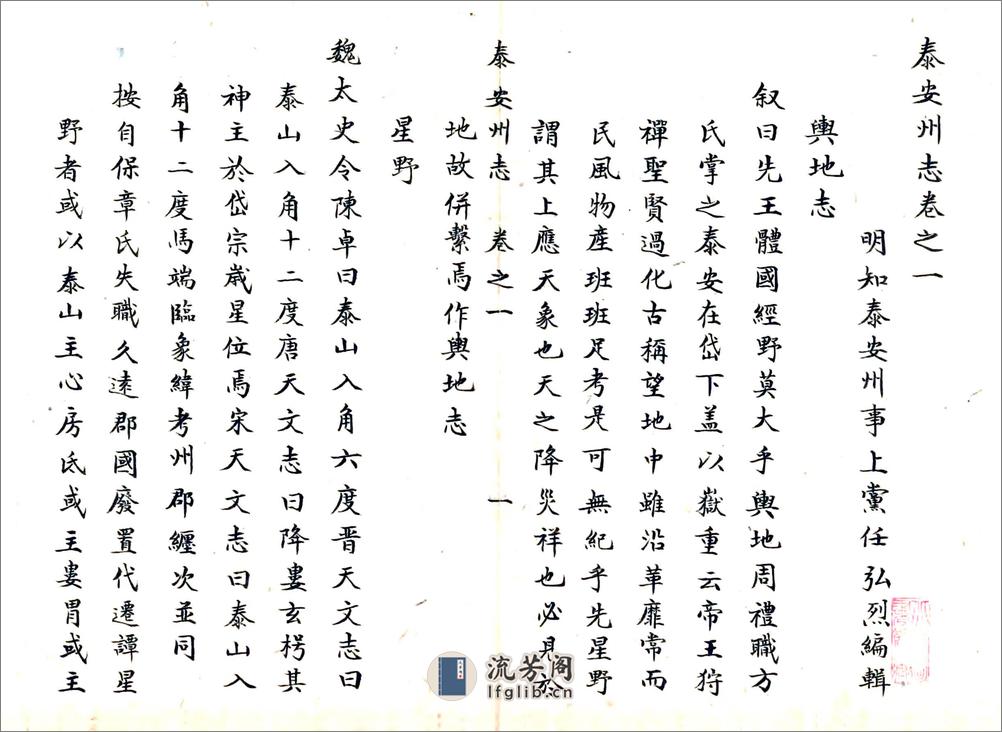 泰安州志卷之一
明知泰安州事上黨任弘烈編輯
輿地志
叙曰先王體國經野莫大乎輿地周禮職方
氏掌之泰安在岱下盖以嶽重云帝王狩
禪聖賢過化古稱望地中雖沿革靡常而
民風物產班班足考是可無紀乎先星野
謂其上應天象也天之降災祥也必見於
泰安州志 卷之一 一
地故併繫焉作輿地志
星野
魏太史令陳卓曰泰山入角六度晋天文志曰
泰山入角十二度唐天文志曰降婁玄枵其
神主於岱宗歲星位焉宋天文志曰泰山入
角十二度馬端臨象緯考州郡纏次並同
按自保章氏失職久遠郡國廢置代遷譚星
野者或以泰山主心房氐或主婁胃或主
流芳阁
lfglib.cn